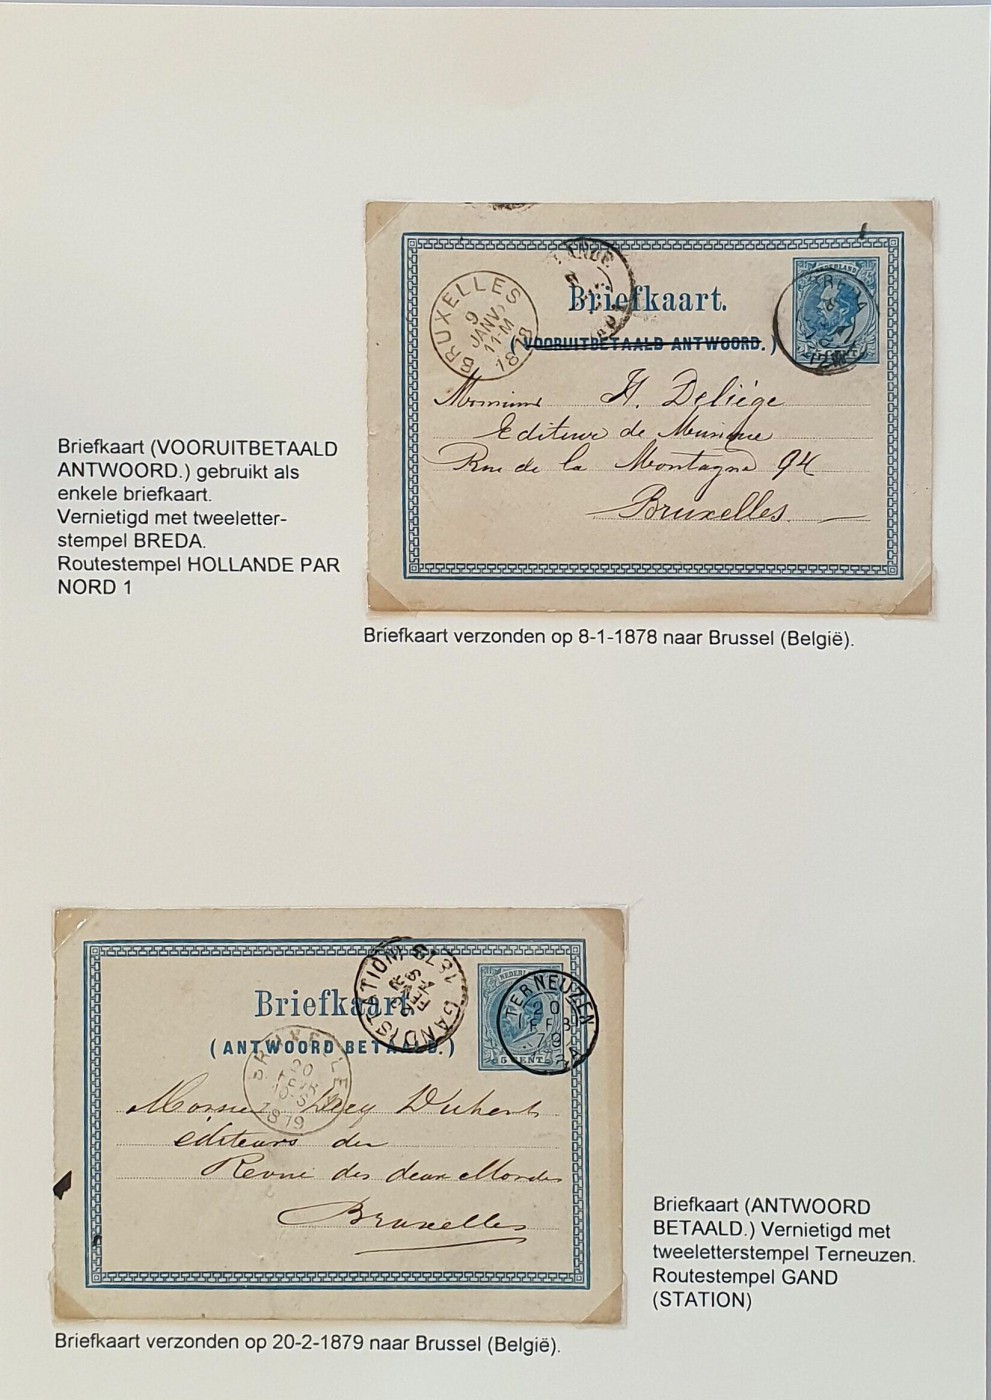 BRUXELLES
9
JANV.
11-M
1878
LANDE
NEDERLAND
BREDA
Briefkaart.
(VOORUITBETAALD ANTWOORD.)
H. Deliége
Editeur de Musique
Rue de la Montagne 94
Bruxelles
Briefkaart (VOORUITBETAALD
ANTWOORD.) gebruikt als
enkele briefkaart.
Vernietigd met tweeletter-
stempel BREDA.
Routestempel HOLLANDE PAR
NORD 1
Briefkaart verzonden op 8-1-1878 naar Brussel (België).
GAND (STATION)
1879
TERNEUZEN
20
FEB
79
5 CENT
Briefkaart.
(ANTWOORD BETAALD.)
BRUXELLES
1879
éditeurs
Revue des deux Mondes
Bruxelles
Briefkaart (ANTWOORD
BETAALD.) Vernietigd met
tweeletterstempel Terneuzen.
Routestempel GAND
(STATION)
Briefkaart verzonden op 20-2-1879 naar Brussel (België).